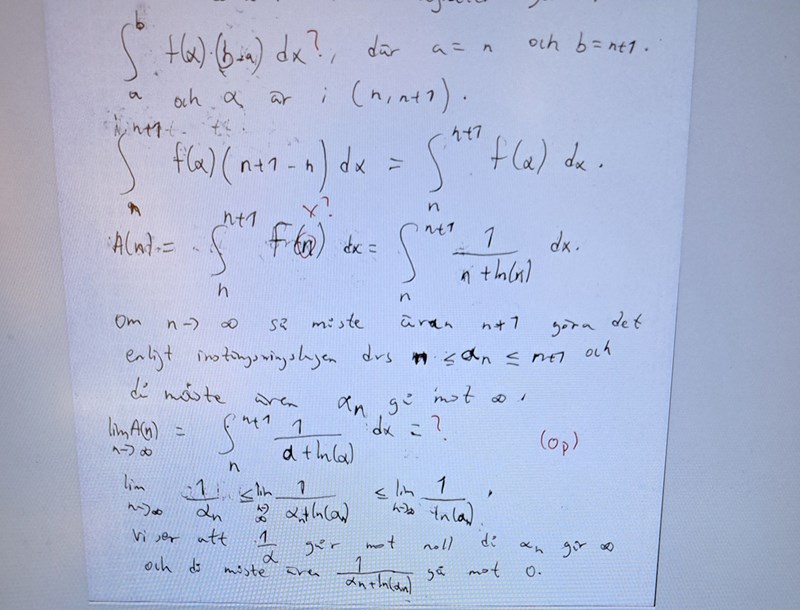 ∫_a^b f(α)·(b-a) dx?, där a = n och b = n+1.
och α är i (n, n+1).
∫_n^{n+1} f(α)(n+1-n) dx = ∫_n^{n+1} f(α) dx.
x?
A(n) = ∫_n^{n+1} f(n) dx = ∫_n^{n+1} 1/(n+ln(n)) dx.
Om n→∞ så måste även n+1 göra det
enligt instängningslagen dvs n ≤ αn ≤ n+1 och
då måste även αn gå mot ∞.
lim_{n→∞} A(n) = ∫_n^{n+1} 1/(α+ln(α)) dx = ? (0p)
lim_{n→∞} 1/αn ≤ lim_{n→∞} 1/(αn+ln(αn)) ≤ lim_{n→∞} 1/ln(αn),
Vi ser att 1/α går mot noll då αn går ∞
och då måste även 1/(αn+ln(αn)) gå mot 0.